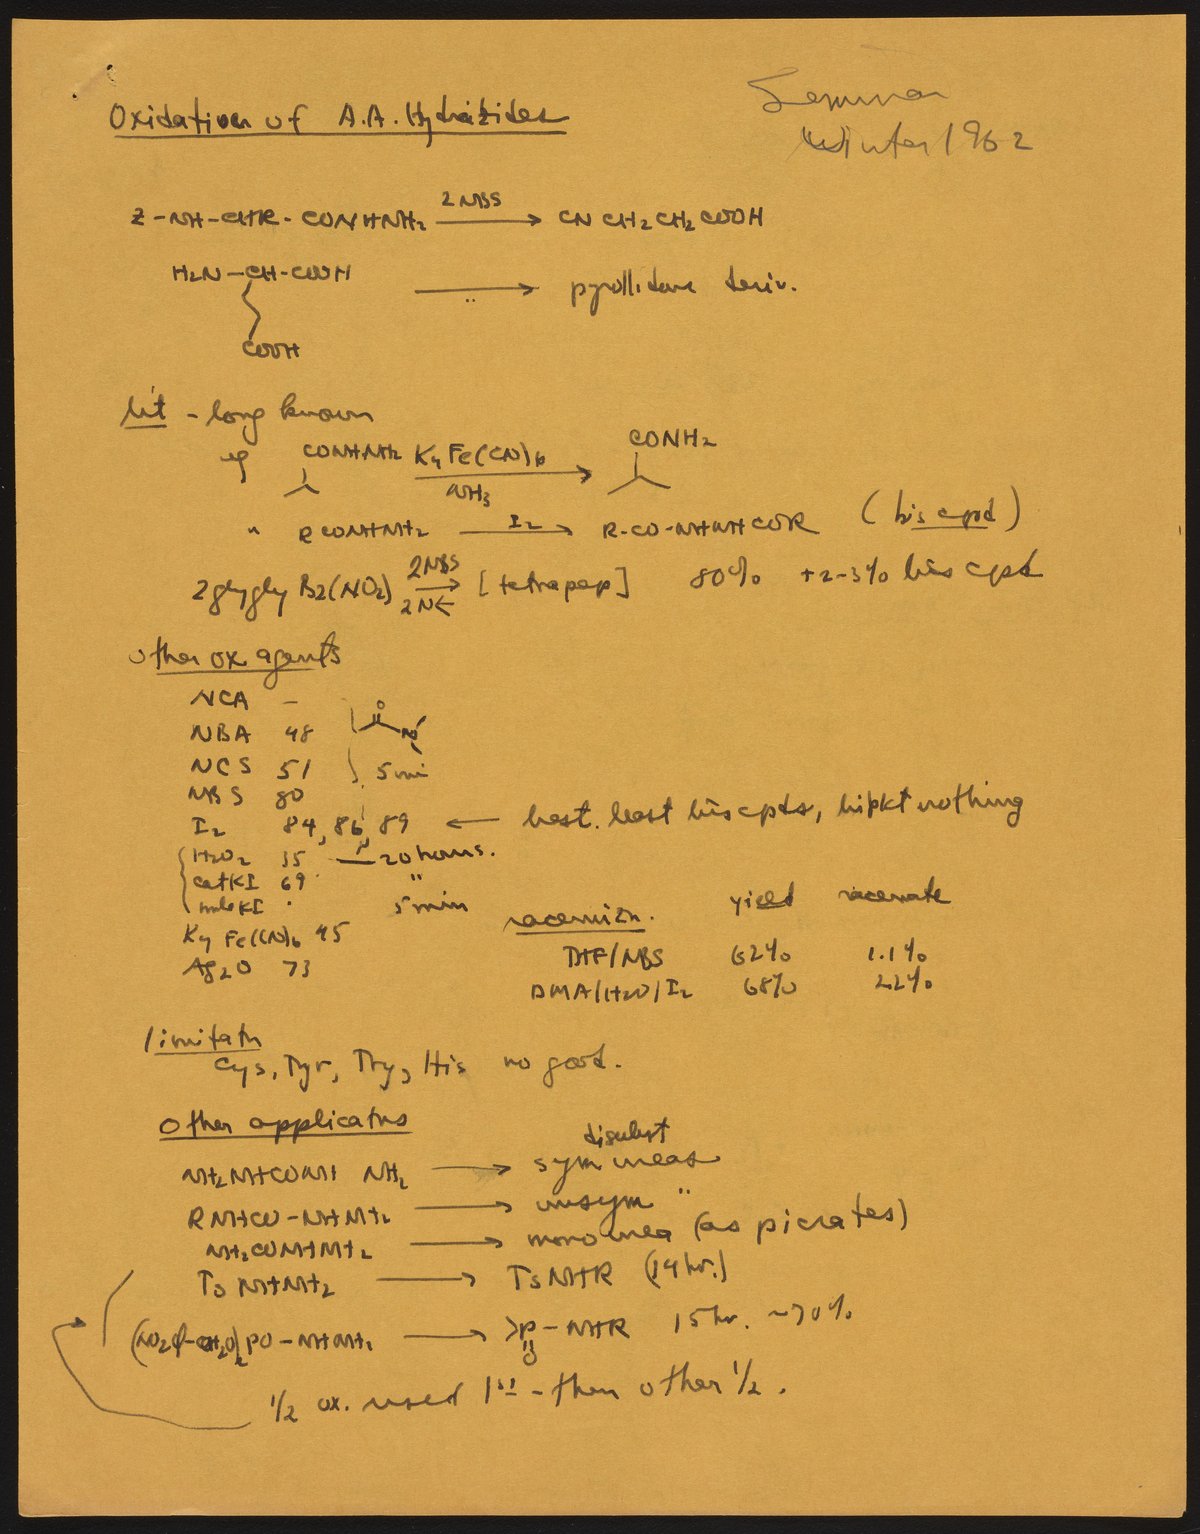 Oxidation of A.A. Hydrazides
Seminar
Winter 1962
Z-NH-CHR-CONHNH2 2 NBS → CN CH2CH2COOH
H2N-CH-COOH
COOH
→ pyrollidone deriv.
lit - long known
eg CONHNH2 K4Fe(CN)6 NH3 → CONH2
" RCONHNH2 I2 → R-CO-NHNHCOR (bis cpd)
Zglygly B2(NO2) 2NBS → [tetrapep] 80% +2-3% bis cpd
other ox agents
NCA -
NBA 48
NCS 51 5 min
NBS 80
I2 84, 86, 89 ← best. least bis cpds,
nothing
H2O2 35 — 20 hours.
cat KI 69 "
mole KI 5 min
K4Fe(CN)6 45
Ag2O 73
racemizn. yield racemate
THF/NBS 62% 1.1%
DMA/H2O/I2 68% 2.2%
limitatn
Cys, Tyr, Try, His no good.
Other applicatns
disubst
NH2NHCONH NH2 → sym ureas
RNHCO-NHNH2 → unsym "
NH2CONHNH2 → monourea (as picrates)
Ts NHNH2 → TsNHR (14 hr.)
(NO2φ-CH2O)2PO-NHNH2 → >P-NHR 15 hr. ~70%
O
1/2 ox. used 1st - then other 1/2.